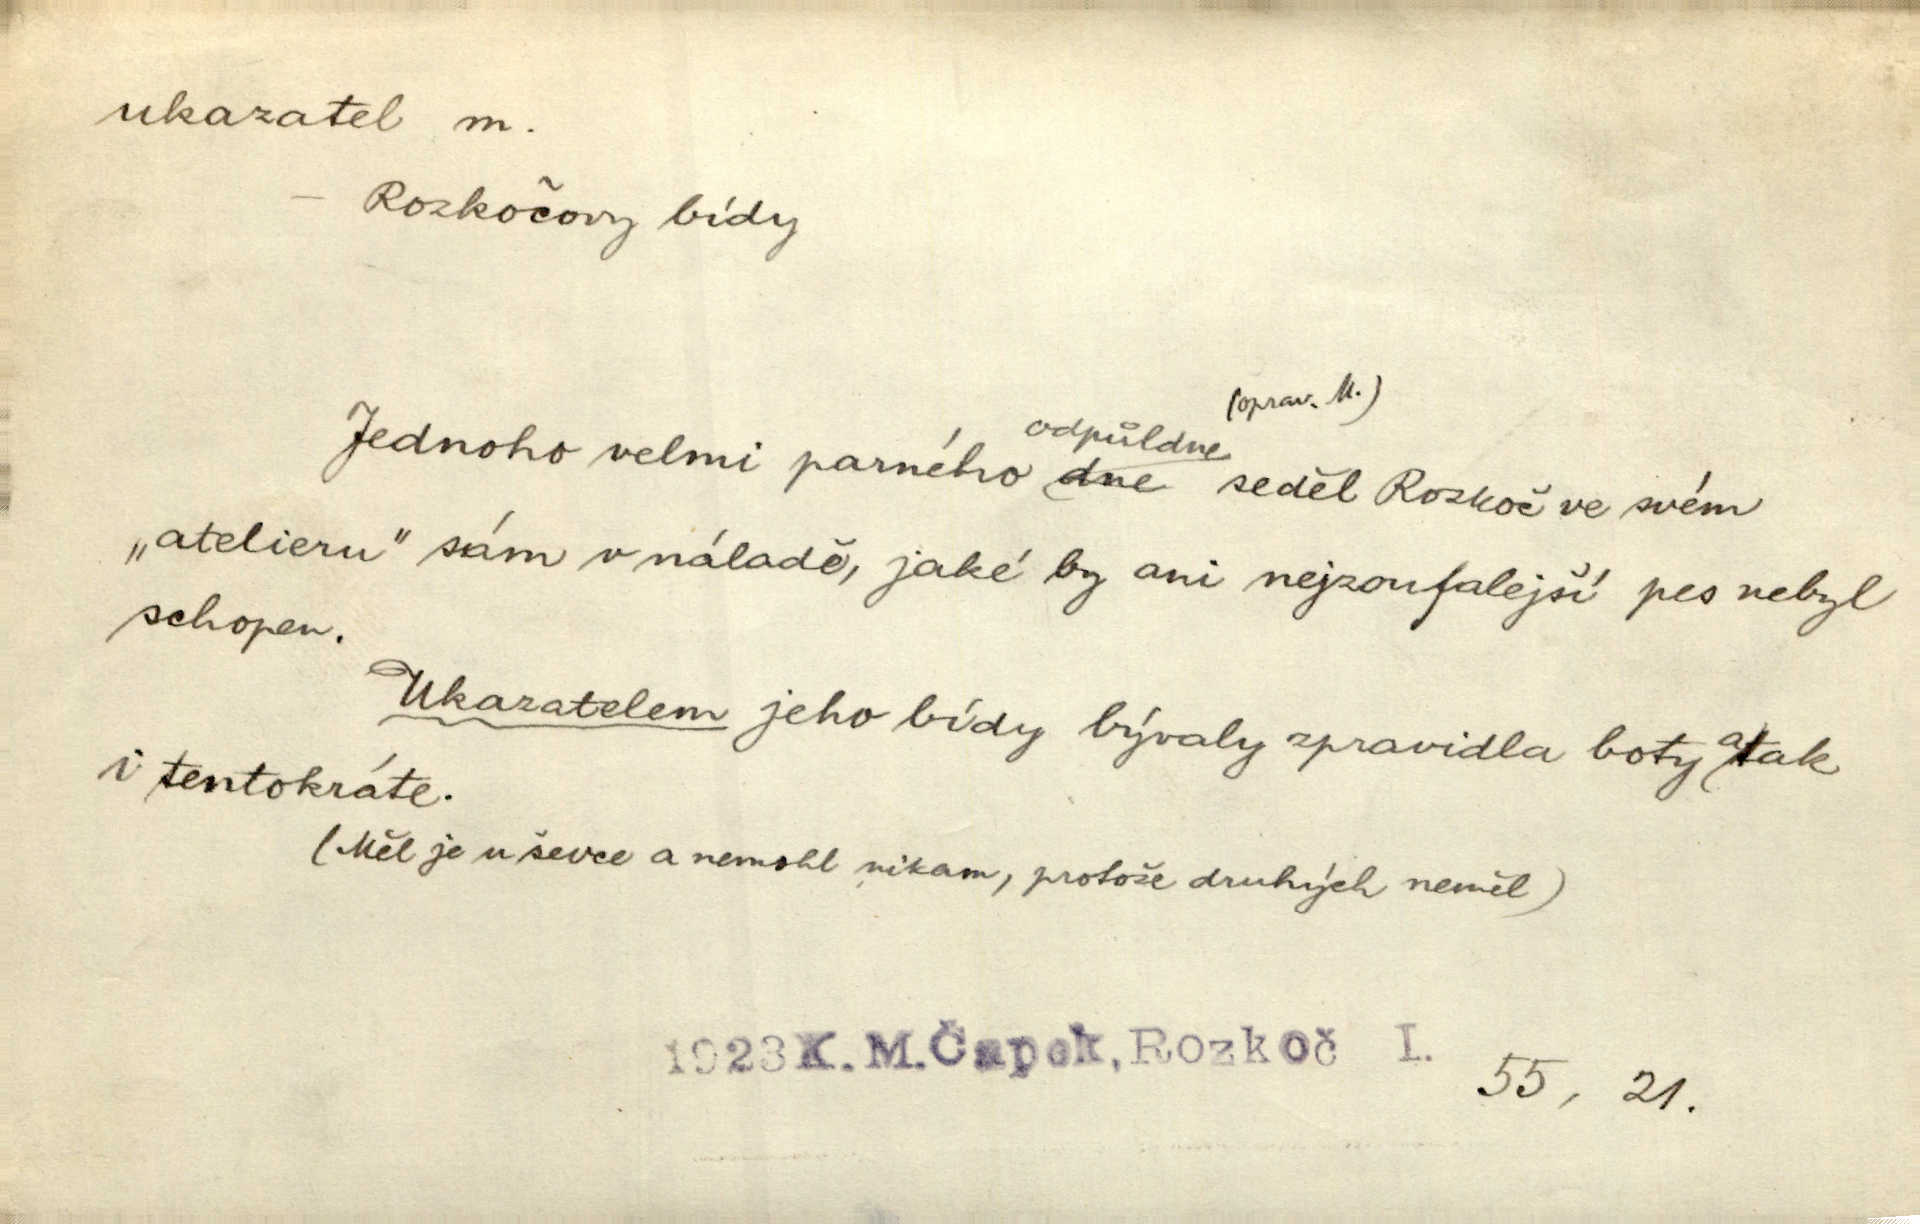 ukazatel m.
– Rozkočovy bídy
(oprav. M.)
odpůldne
Jednoho velmi parného dne seděl Rozkoč ve svém
„atelieru" sám v náladě, jaké by ani nejzoufalejší pes nebyl
schopen.
Ukazatelem jeho bídy bývaly zpravidla boty a tak
i tentokráte.
(Měl je u ševce a nemohl nikam, protože druhých neměl)
1923 K. M. Čapek, Rozkoč I. 55, 21.